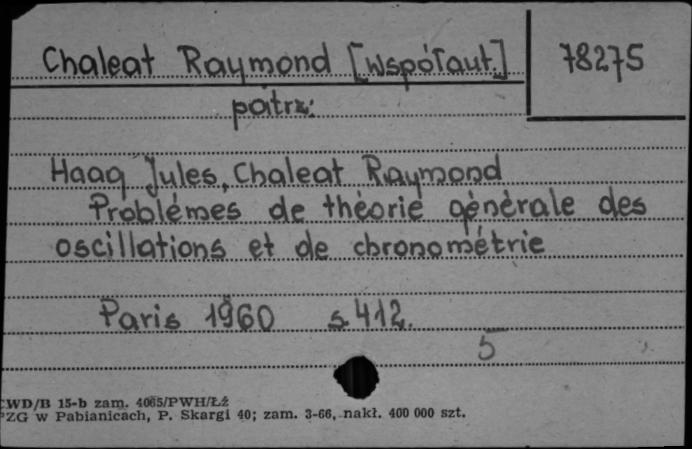 Chaleat Raymond [współaut.]
78275
patrz:
Haag Jules, Chaleat Raymond
Problémes de théorie générale des
oscillations et de chronométrie
Paris 1960 s. 412.
5
CWD/B 15-b zam. 4065/PWH/Łź
PZG w Pabianicach, P. Skargi 40; zam. 3-66, nakł. 400 000 szt.